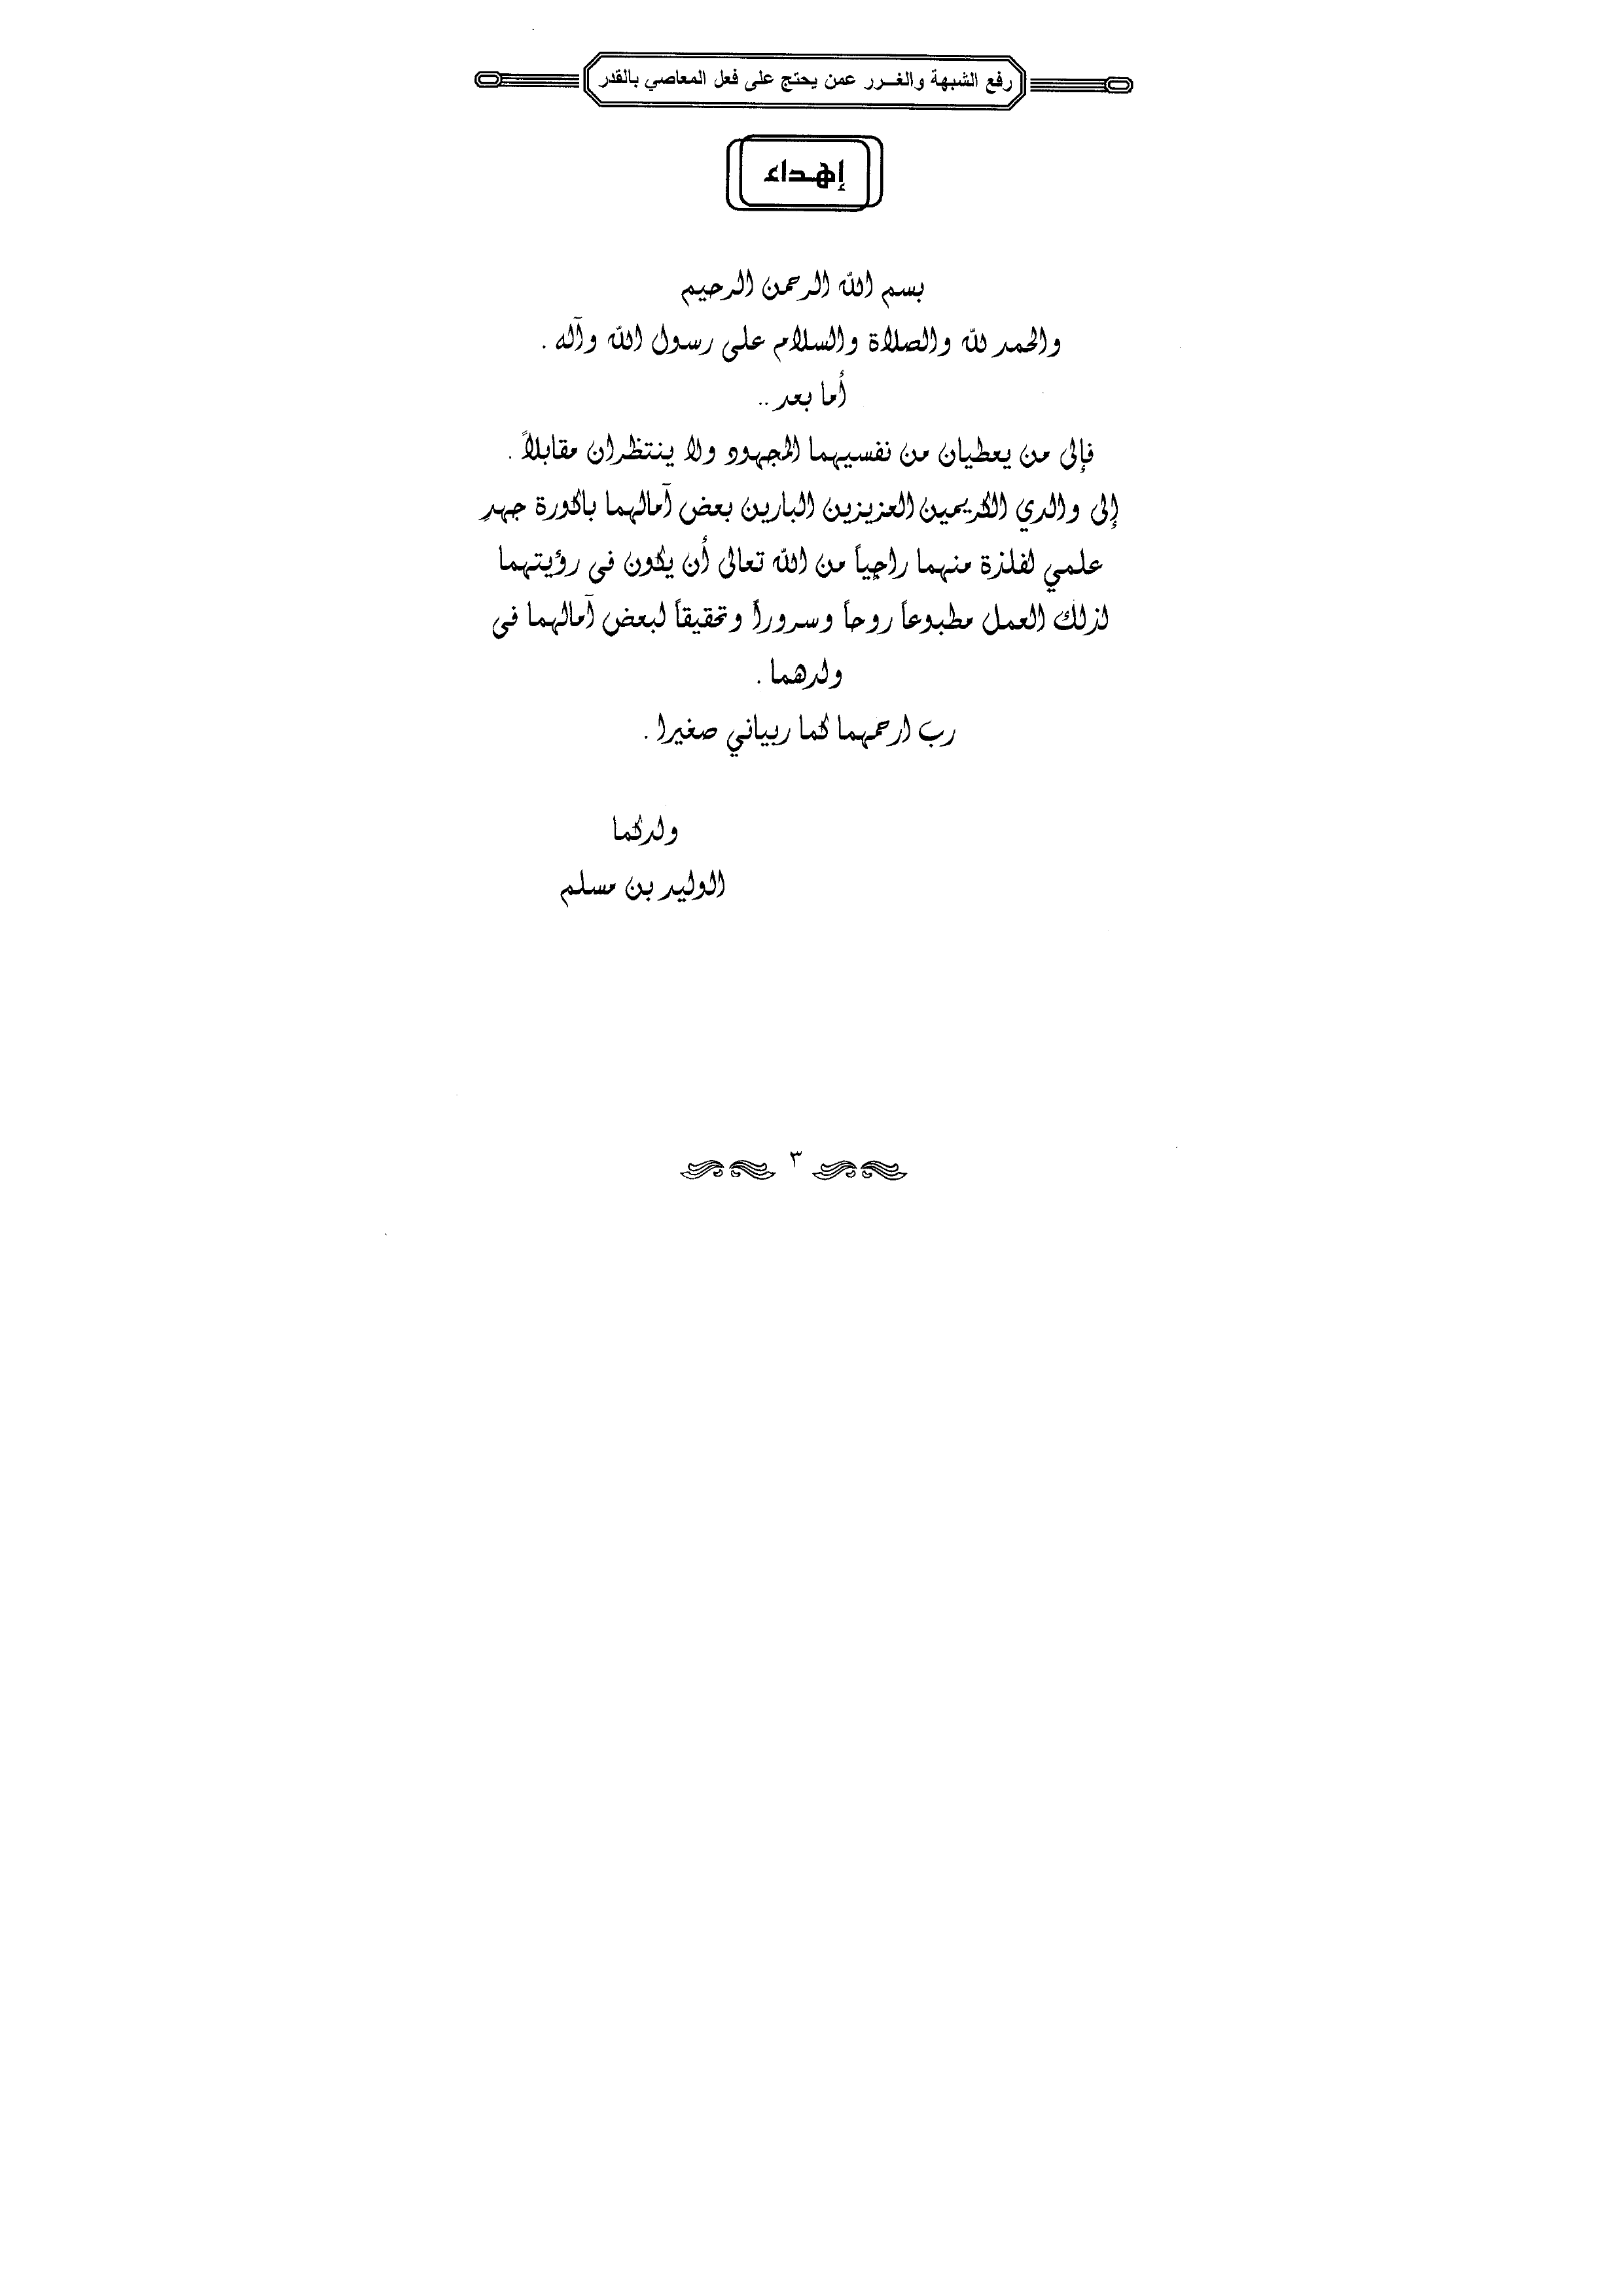 رفع الشبهة والغرر عمن يحتج على فعل المعاصي بالقدر
إهداء
بسم الله الرحمن الرحيم
والحمد لله والصلاة والسلام على رسول الله وآله .
أما بعد ..
فإلى من يعطيان من نفسيهما المجهود ولا ينتظران مقابلاً .
إلى والدي الكريمين العزيزين البارين بعض آمالهما باكورة جهدِ
علمي لفلذة منهما راجياً من الله تعالى أن يكون في رؤيتهما
لذلك العمل مطبوعاً روحاً وسروراً وتحقيقاً لبعض آمالهما في
ولدهما .
رب ارحمهما كما ربياني صغيرا .
ولدكما
الوليد بن مسلم
٣